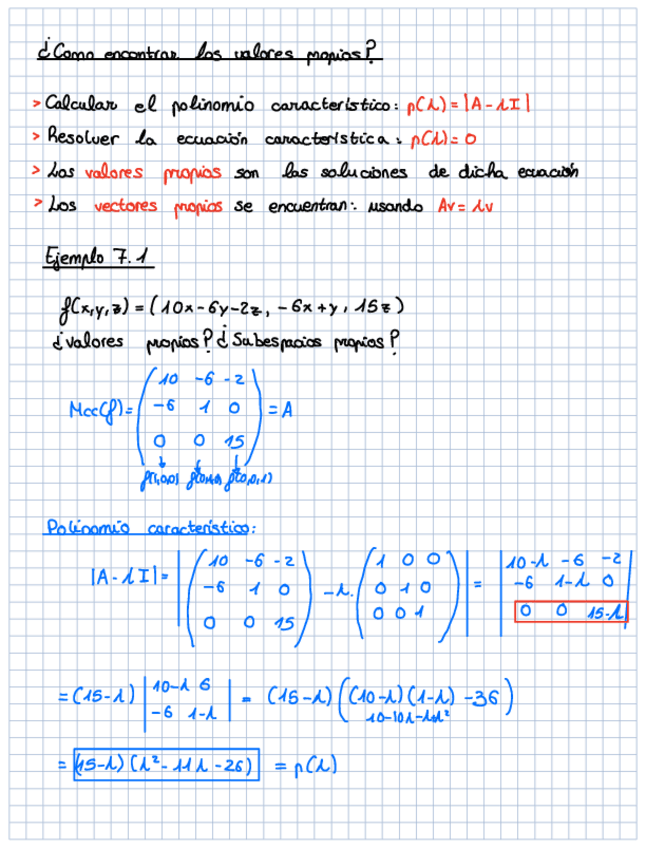 ¿Como encontrar los valores propios?
> Calcular el polinomio característico: p(λ) = |A - λI|
> Resolver la ecuación característica: p(λ) = 0
> Los valores propios son las soluciones de dicha ecuación
> Los vectores propios se encuentran: usando Av = λv
Ejemplo 7.1
f(x,y,z) = (10x - 6y - 2z, -6x + y, 15z)
¿valores propios? ¿Subespacios propios?
10 -6 -2
Mcc(f) = -6 1 0 = A
0 0 15
f(1,0,0) f(0,1,0) f(0,0,1)
Polinomio característico:
10 -6 -2 1 0 0 10-λ -6 -2
|A - λI| = -6 1 0 -λ. 0 1 0 = -6 1-λ 0
0 0 15 0 0 1 0 0 15-λ
= (15-λ) | 10-λ 6 | = (15-λ) ((10-λ)(1-λ) - 36)
-6 1-λ 10-10λ-λ+λ²
= (15-λ) (λ² - 11λ - 26) = p(λ)